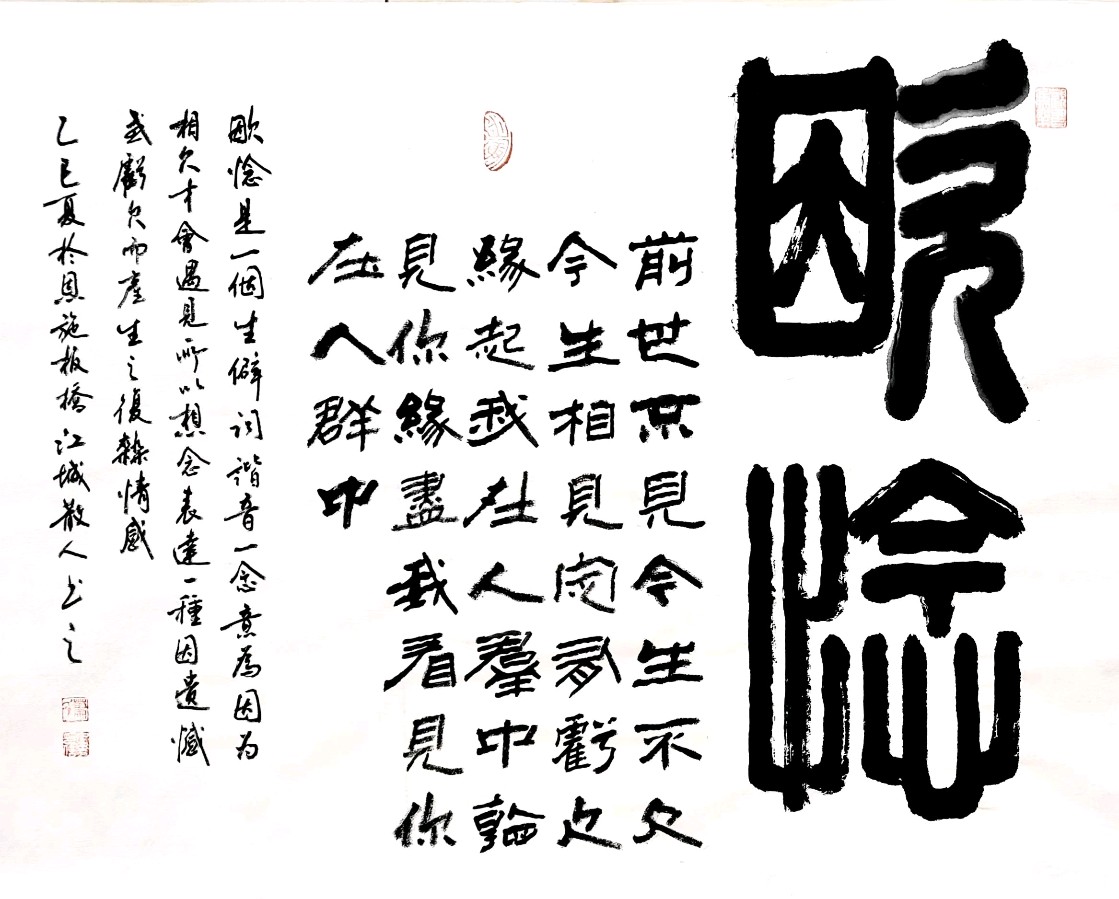 欭惗
前世不見今生不欠
今生相見定有虧欠
緣起我在人羣中看
見你緣盡我看見你
在人群中
欭惗是一個生僻词諧音一念意為因为
相欠才會遇見所以想念表達一種因遺憾
或虧欠而產生之復雜情感
乙巳夏於恩施板橋江城散人书之